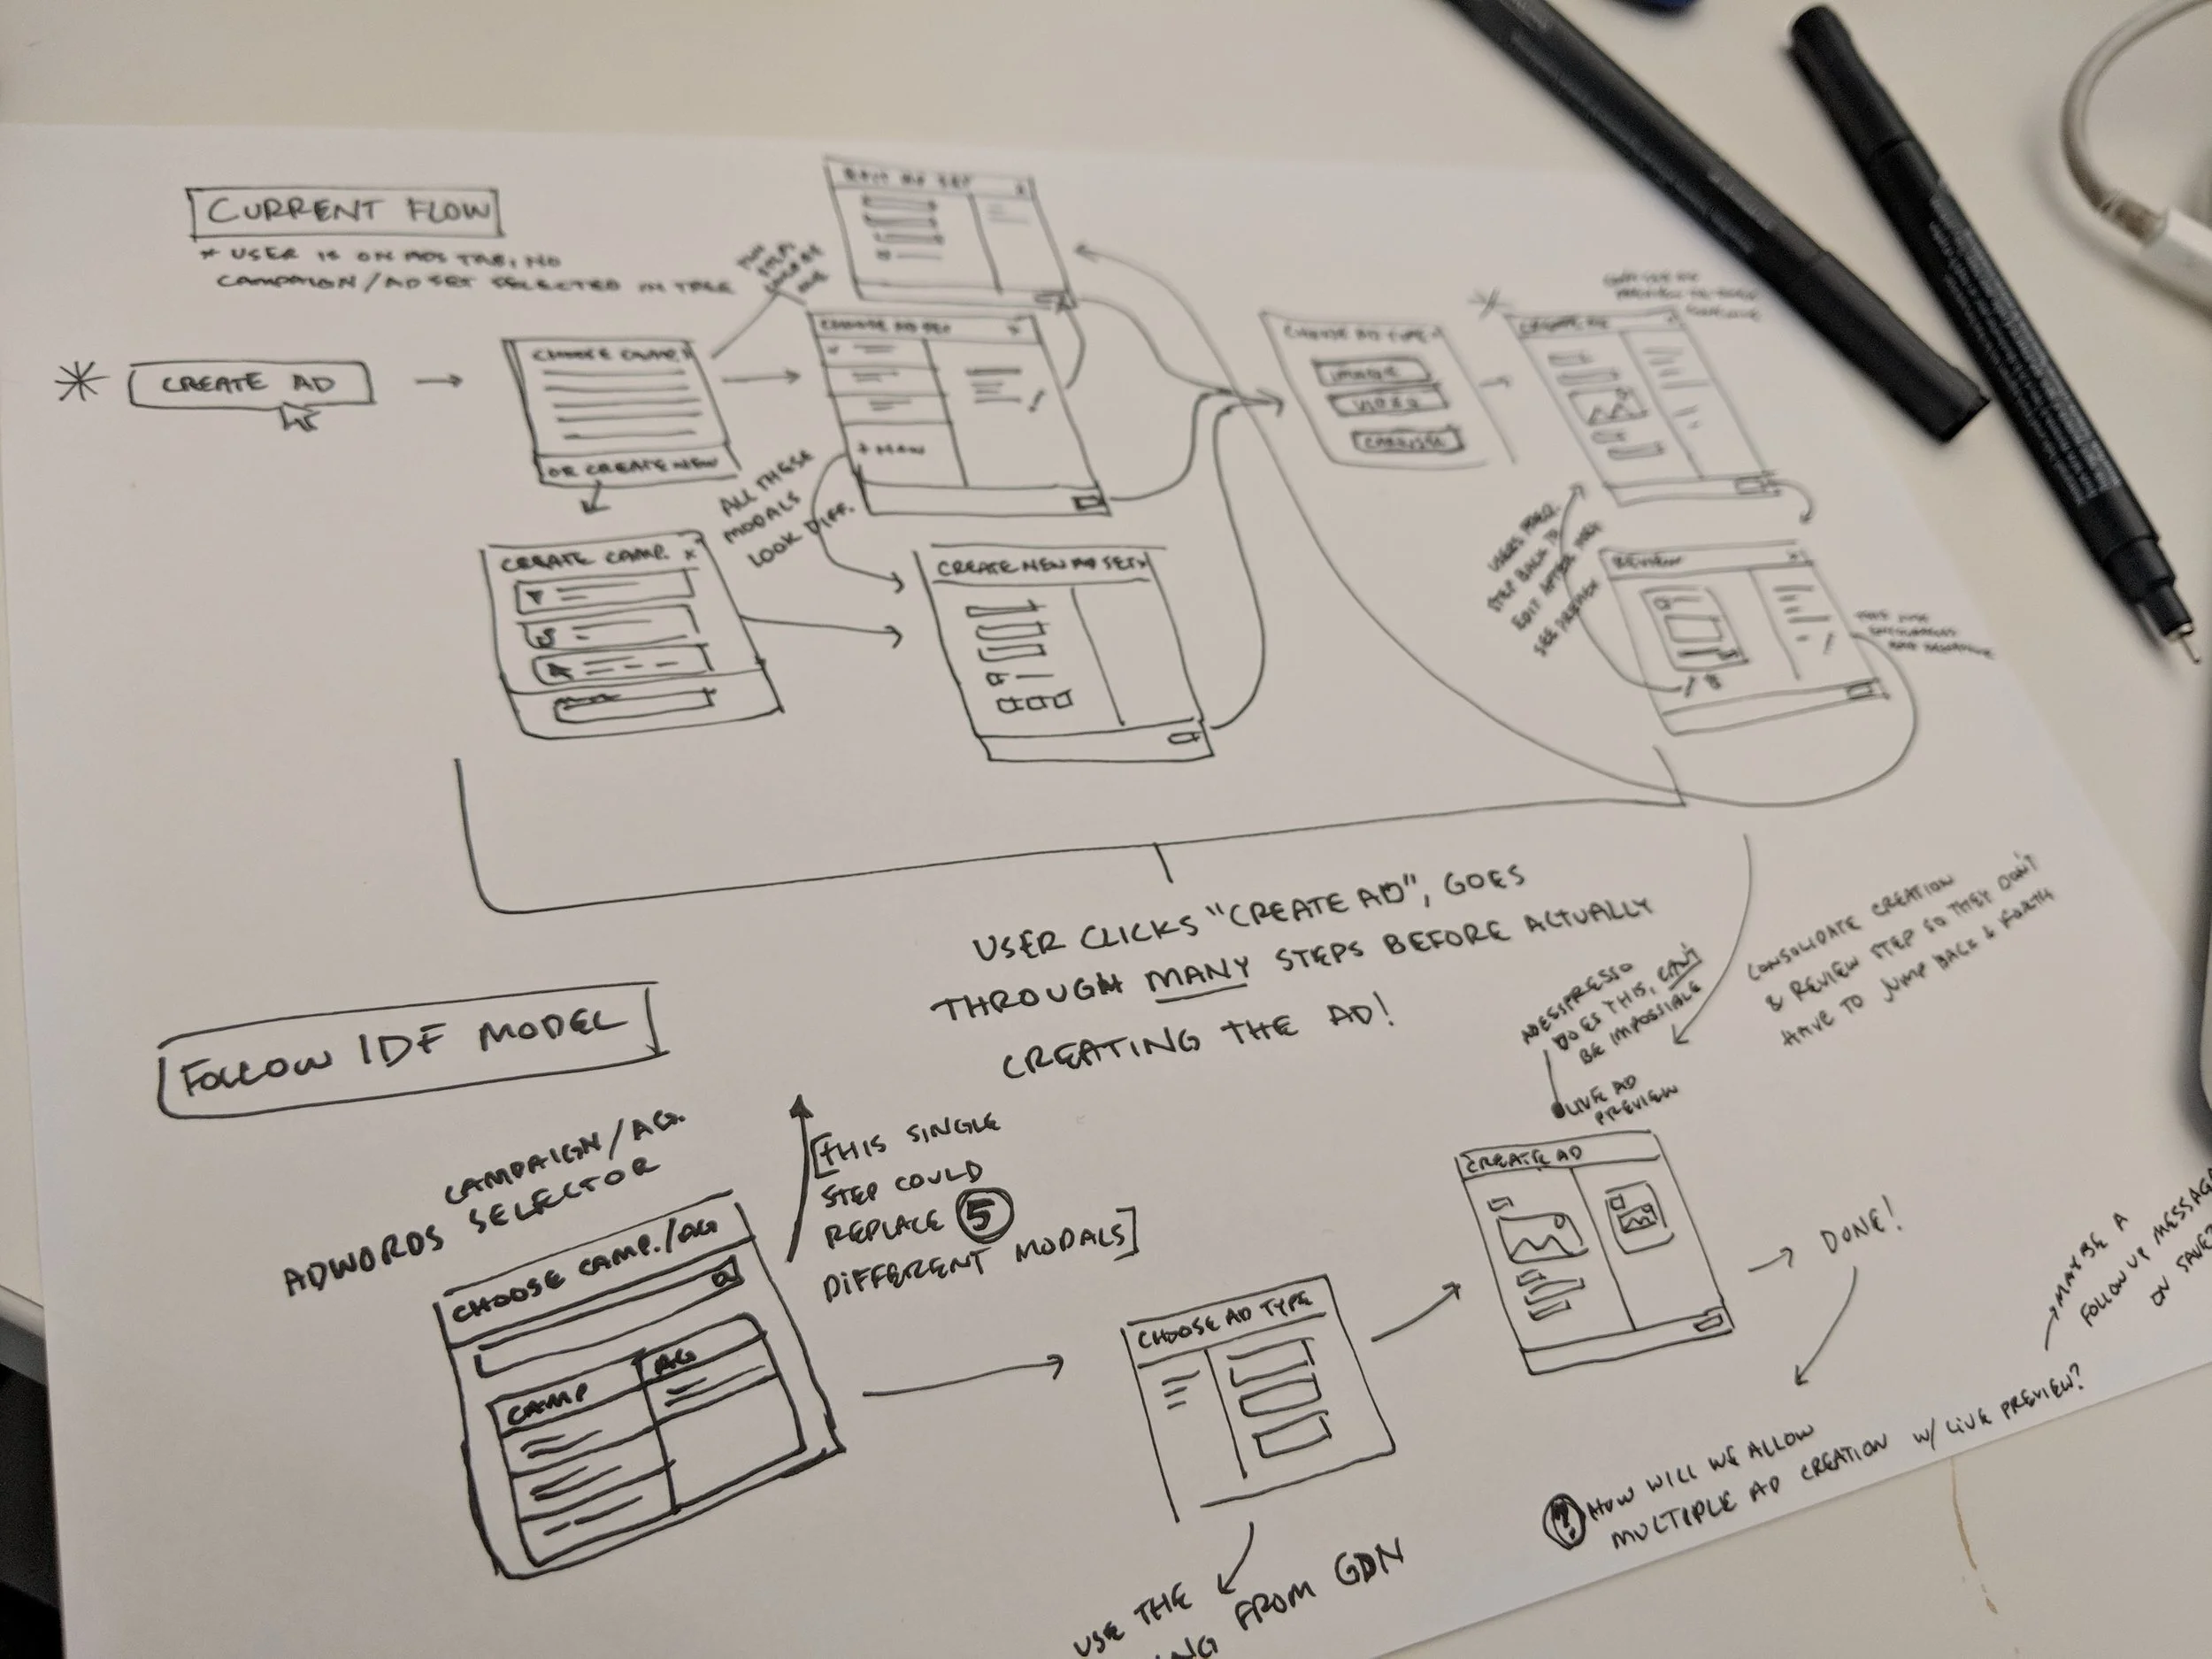 CURRENT FLOW
* USER IS ON ADS TAB, NO
CAMPAIGN/AD SET SELECTED IN TREE
CREATE AD
CHOOSE CAMP. X
OR CREATE NEW
CREATE CAMP. X
EDIT AD SET X
CHOOSE AD SET X
+ NEW
ALL THESE
MODALS
LOOK DIFF.
CREATE NEW AD SET X
CHOOSE AD TYPE X
IMAGE
VIDEO
CAROUSEL
CREATE AD
USERS
STEP BACK TO
EDIT AFTER THEY
SEE PREVIEW
REVIEW X
USER CLICKS "CREATE AD", GOES
THROUGH MANY STEPS BEFORE ACTUALLY
CREATING THE AD!
CONSOLIDATE CREATION
& REVIEW STEP SO THEY DON'T
HAVE TO JUMP BACK & FORTH
ADESPRESSO
DOES THIS, CAN'T
BE IMPOSSIBLE
LIVE AD
PREVIEW
FOLLOW IDF MODEL
CAMPAIGN/AG.
ADWORDS SELECTOR
CHOOSE CAMP./AG
CAMP
AG
[THIS SINGLE
STEP COULD
REPLACE 5
DIFFERENT MODALS]
CHOOSE AD TYPE
USE THE
FROM GDN
CREATE AD
DONE!
? HOW WILL WE ALLOW
MULTIPLE AD CREATION W/ LIVE PREVIEW?
MAYBE A
FOLLOW UP MESSAGE
ON SAVE?